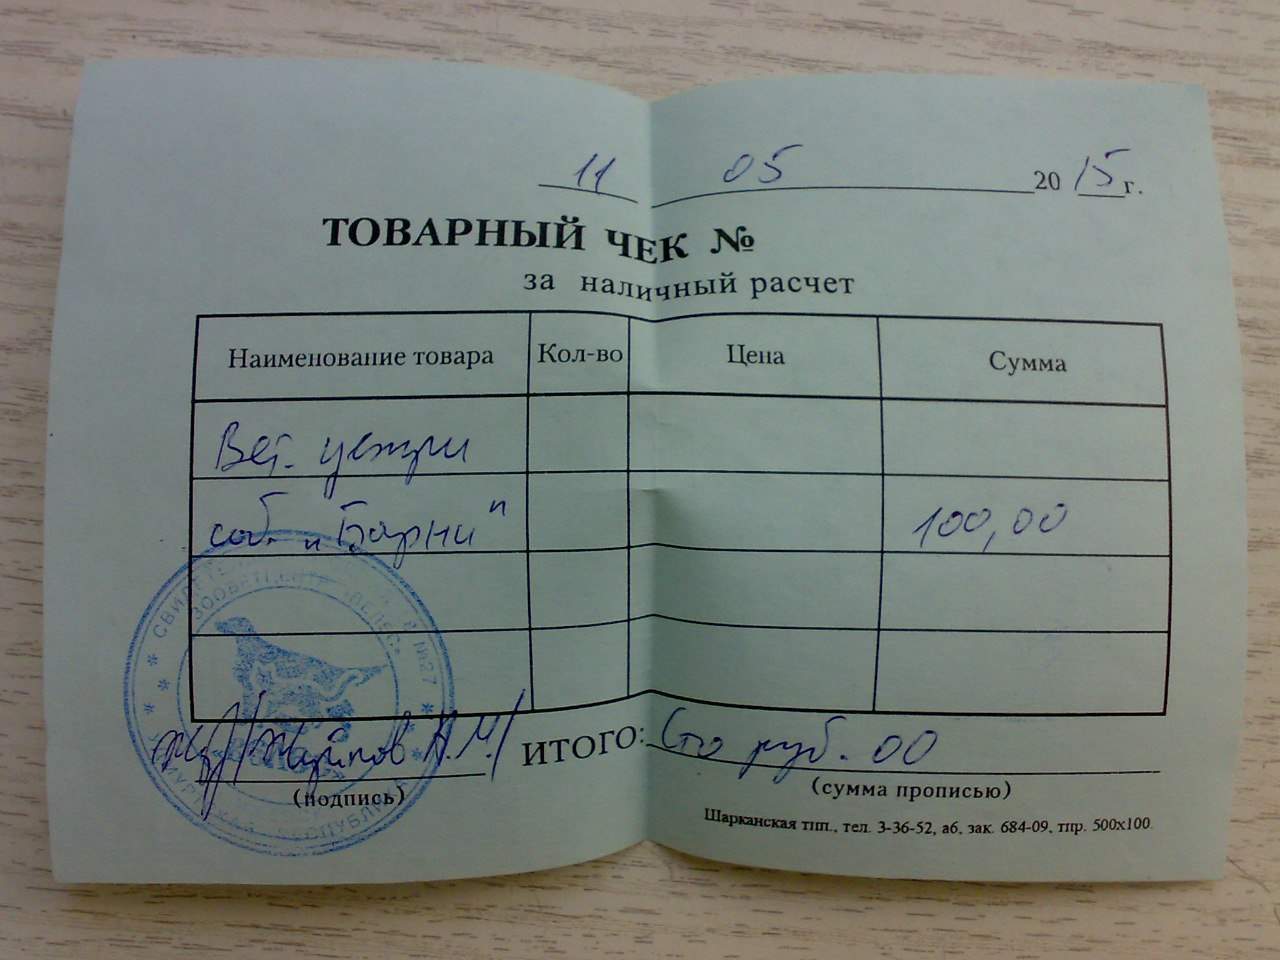 11 05 2015 г.
ТОВАРНЫЙ ЧЕК №
за наличный расчет
Наименование товара Кол-во Цена Сумма
Вет.
соб. „Барни" 100,00
СВИДЕТЕ № 27
ЗООВЕТЦЕНТР «ВЕЛЕС»
РЕСПУБЛИКА
А.М./ ИТОГО: Сто руб. 00
(подпись) (сумма прописью)
Шарканская тип., тел. 3-36-52, аб, зак. 684-09, тир. 500x100.